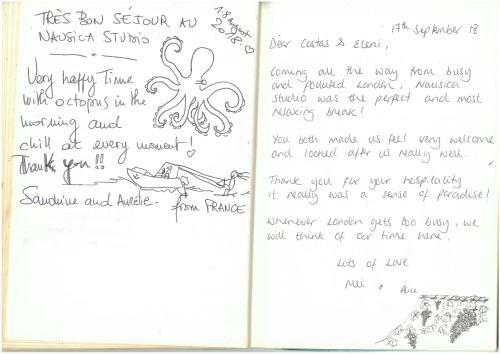 TRÈS BON SÉJOUR AU
NAUSICA STUDIO
1-8 August
2018.
Very happy Time
with octopus in the
morning and
chill at every moment!
Thank you!!
Sandrine and Aurélie-
from FRANCE
17th September 18
Dear Costas & Eleni,
Coming all the way from busy
and polluted London, Nausica
studio was the perfect and most
relaxing break!
You both made us feel very welcome
and looked after us really well.
Thank you for your hospitality
it really was a sense of paradise!
Whenever London gets too busy, we
will think of our time here.
Lots of Love
Mei + Alice